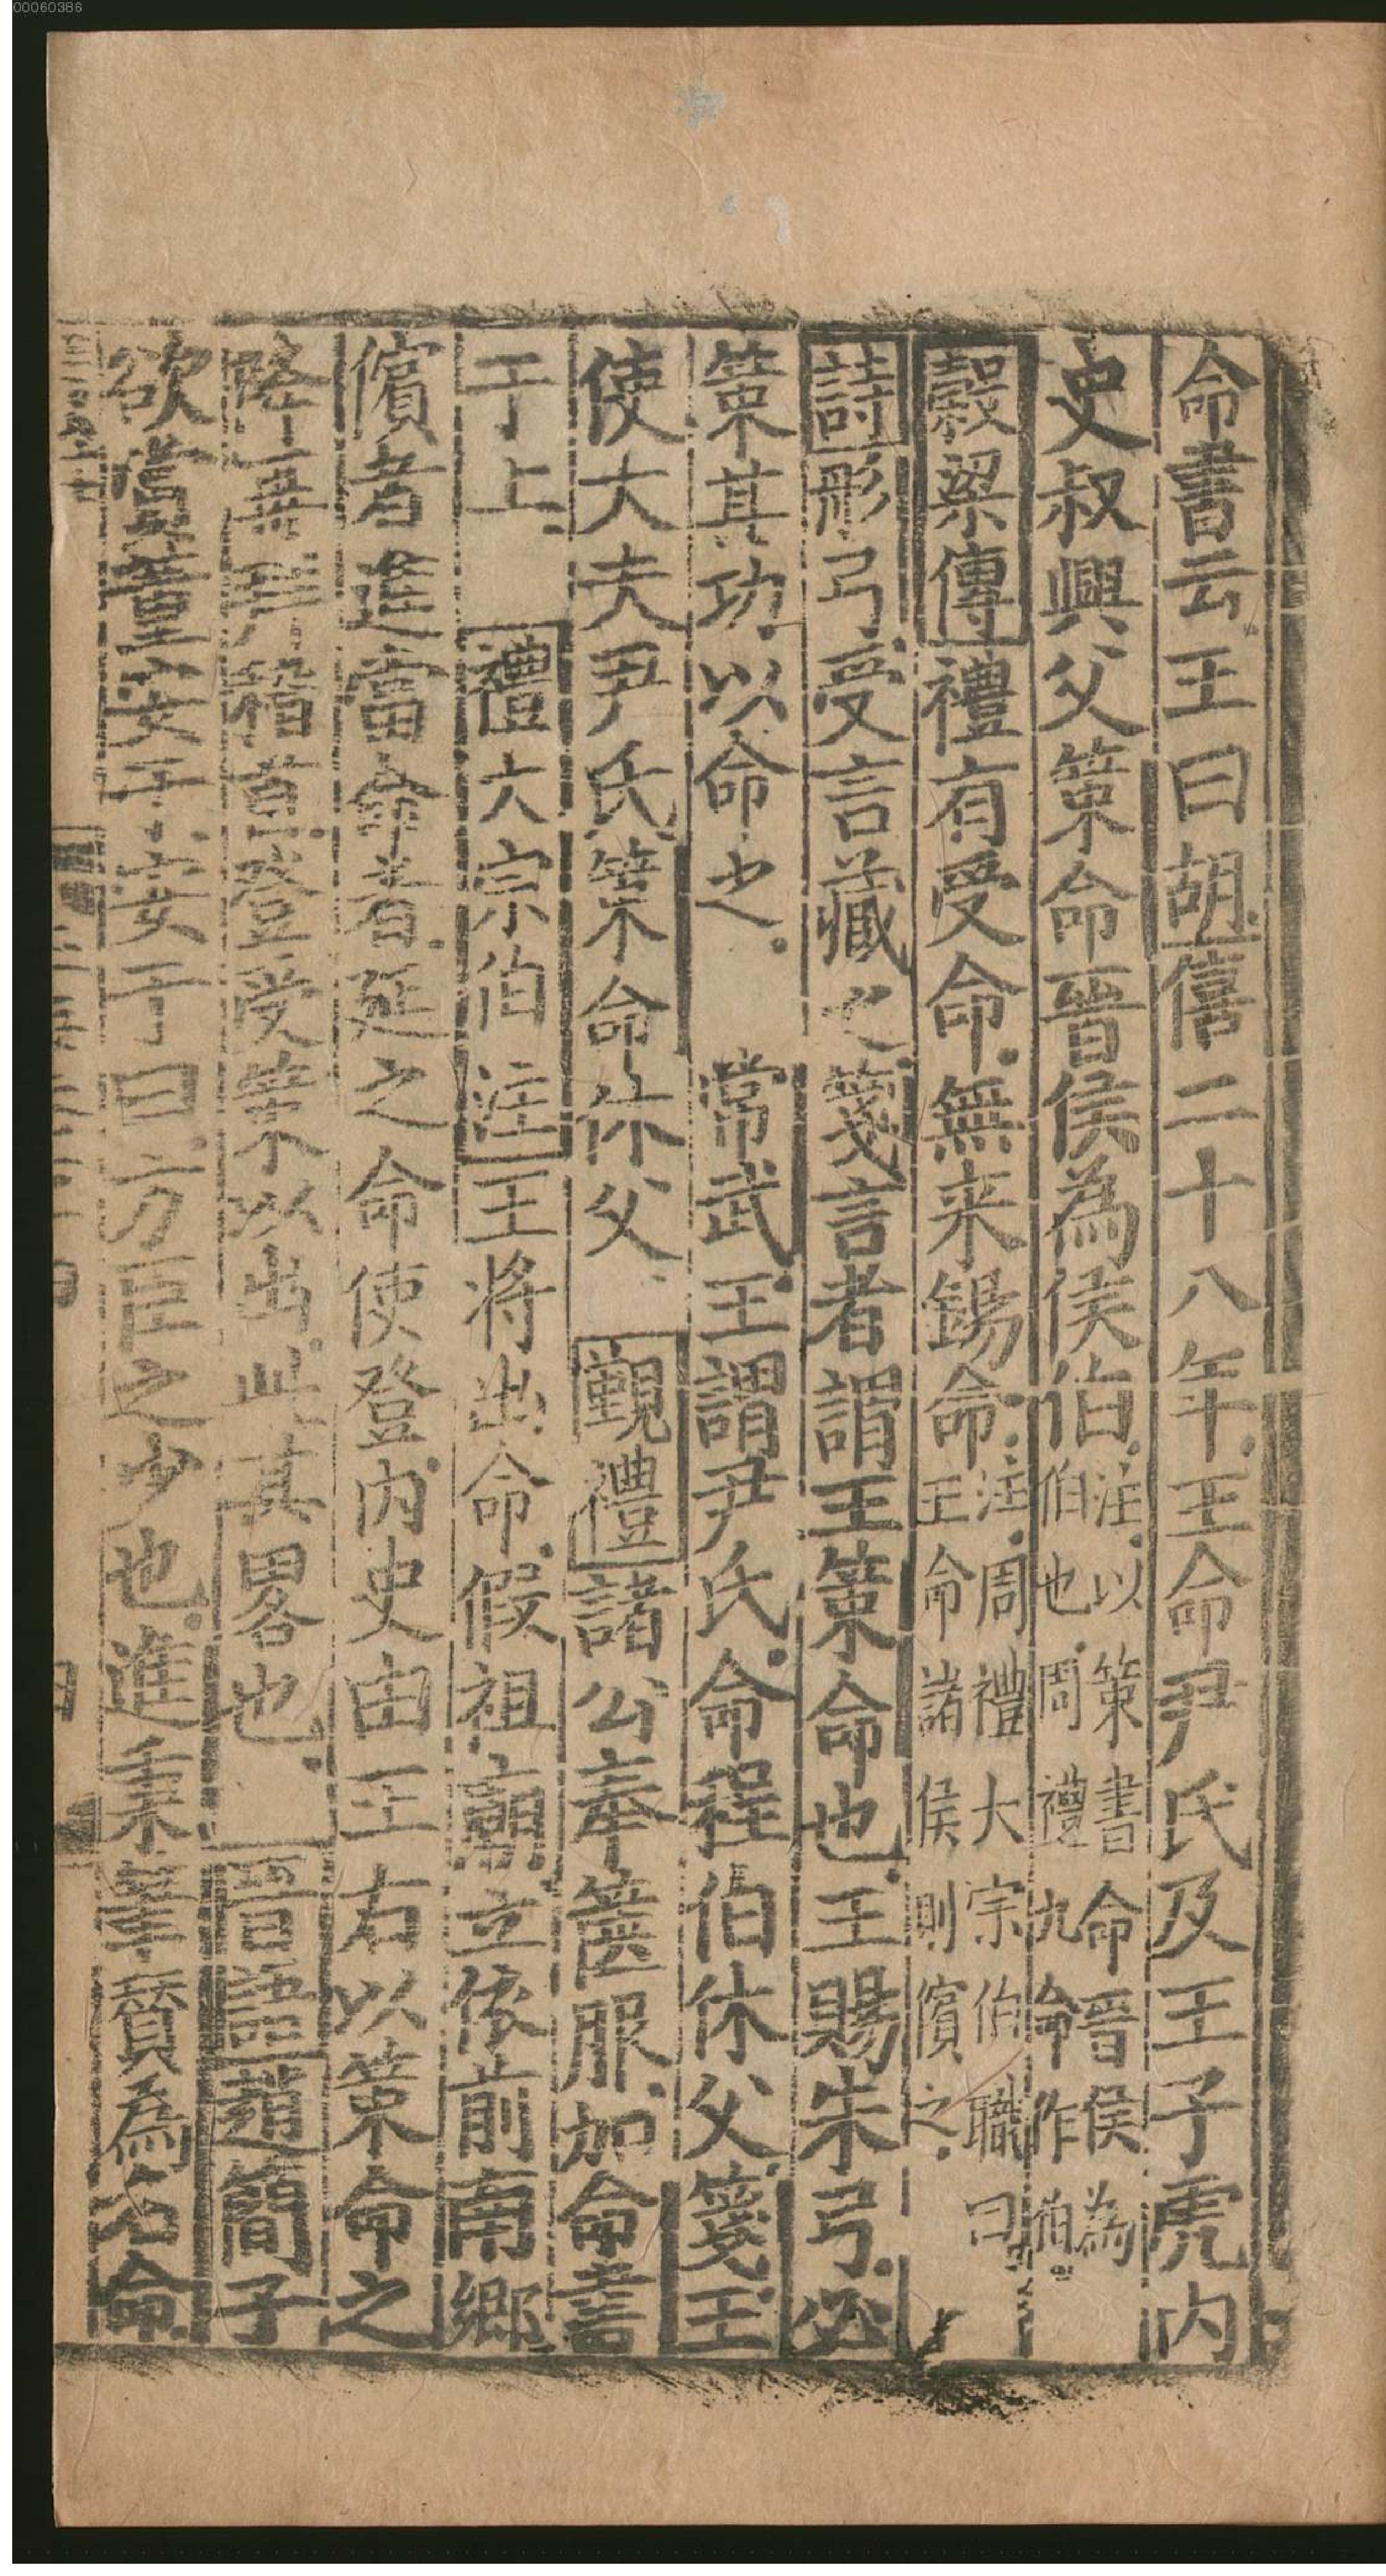 00060386
命書云王曰胡僖二十八年王命尹氏及王子虎内
史叔興父策命晉侯為侯伯注以策書命晉侯為伯也周禮九命作伯
穀梁傳禮有受命無来錫命注周禮大宗伯職曰王命諸侯則儐之
詩彤弓受言藏之箋言者謂王策命也王賜朱弓必
策其功以命之常武王謂尹氏命程伯休父箋王
使大夫尹氏策命休父覲禮諸公奉篋服加命書
于上禮大宗伯注王将出命假祖廟立依前南郷
儐者進當命者延之命使登内史由王右以策命之
降再拜稽首登受策以出此其畧也晉語趙簡子
欲當董安于安于曰方臣之少也進秉筆贊為名命